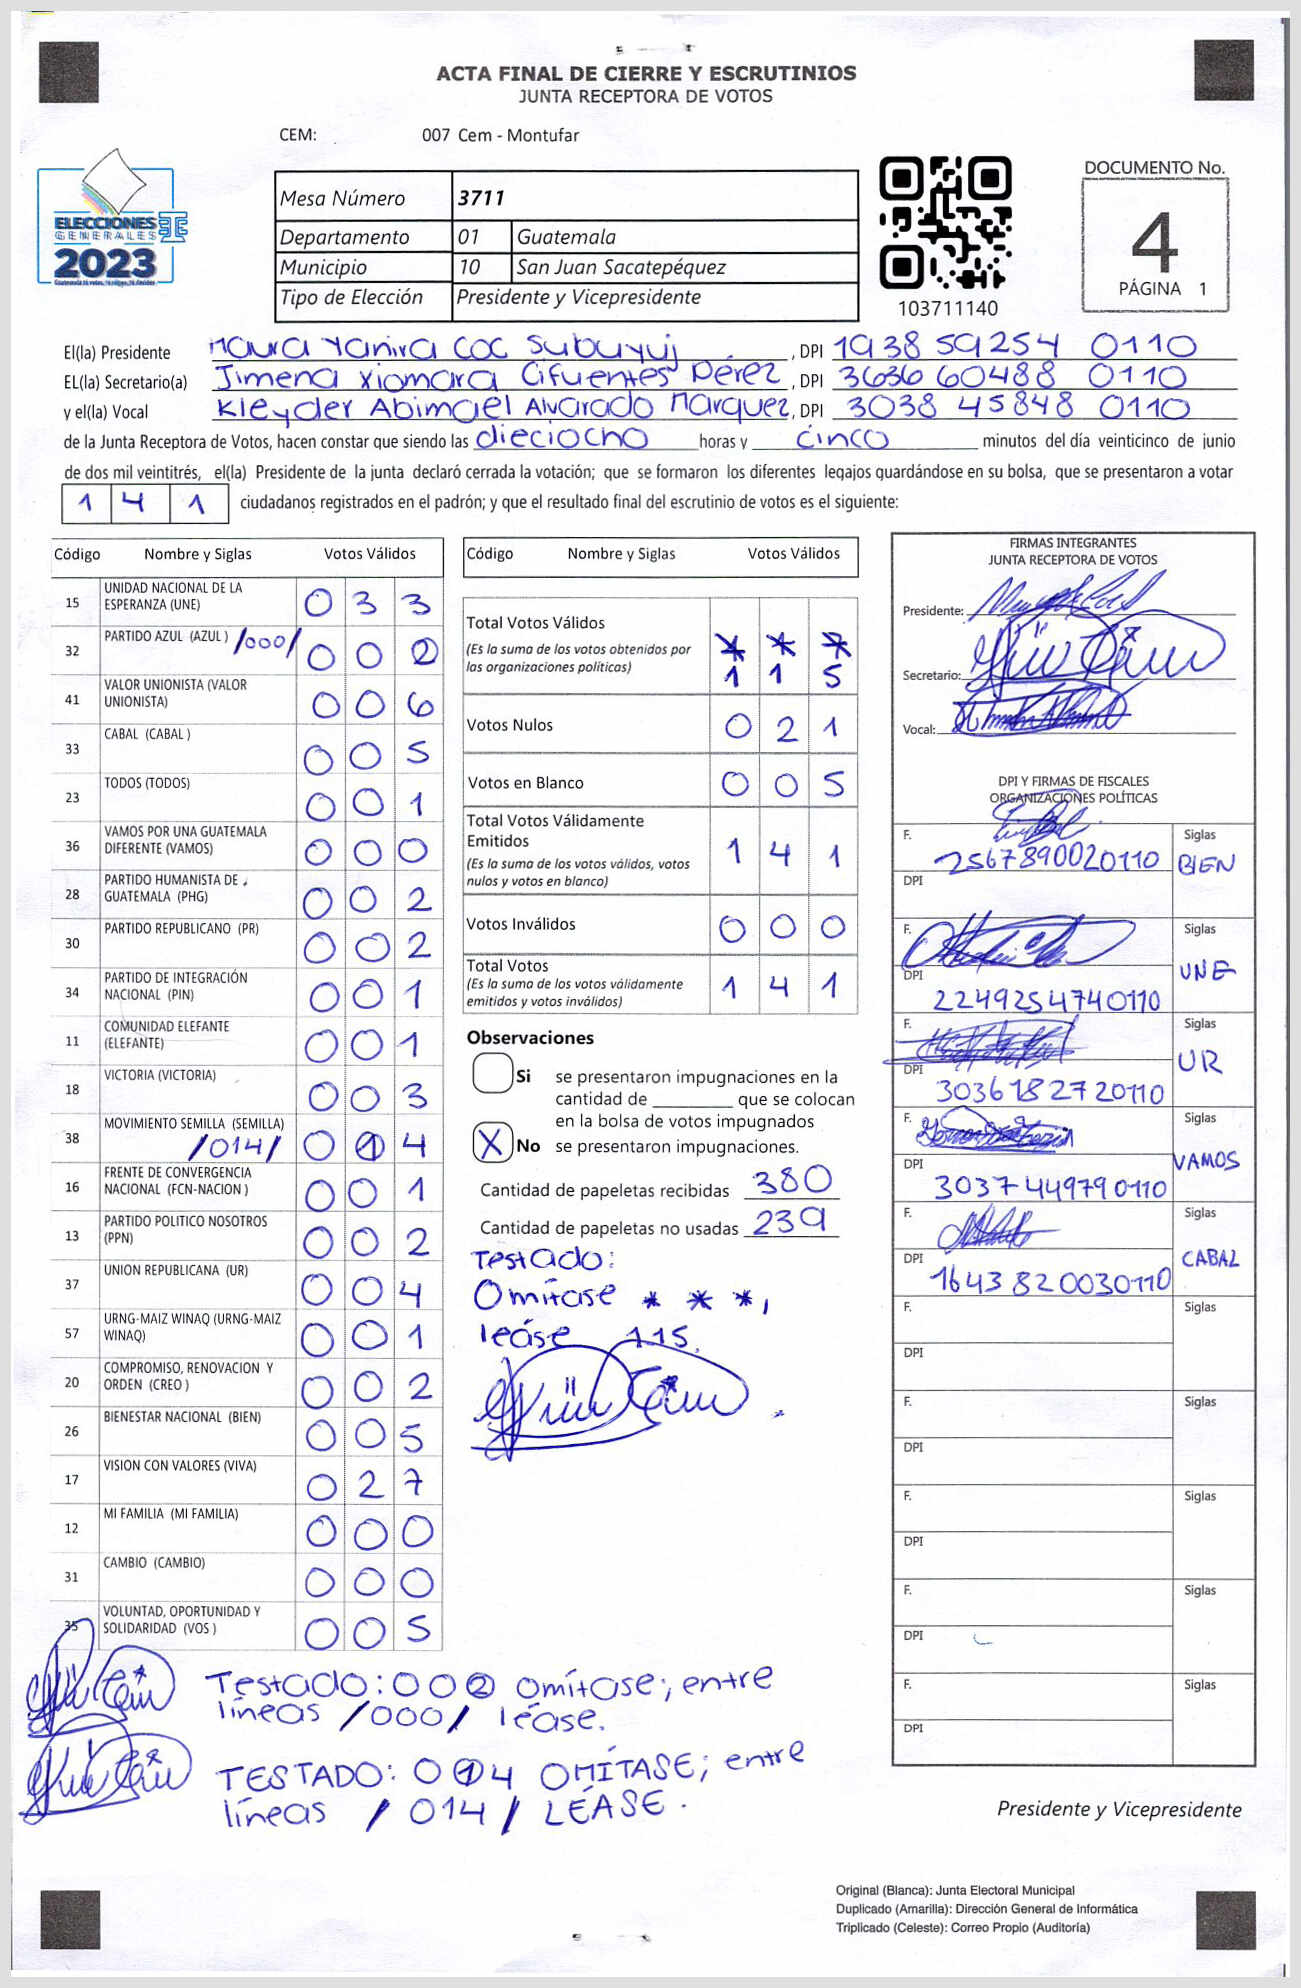 ACTA FINAL DE CIERRE Y ESCRUTINIOS
JUNTA RECEPTORA DE VOTOS
CEM: 007 Cem - Montufar
ELECCIONES
GENERALES
2023
Mesa Número 3711
Departamento 01 Guatemala
Municipio 10 San Juan Sacatepéquez
Tipo de Elección Presidente y Vicepresidente
103711140
DOCUMENTO No.
4
PÁGINA 1
El(la) Presidente Maura Yanira Coc Subuyuj, DPI 1938 59254 0110
EL(la) Secretario(a) Jimena Xiomara Cifuentes Pérez, DPI 3636 60488 0110
y el(la) Vocal Kleyder Abimael Alvarado Marquez, DPI 3038 45848 0110
de la Junta Receptora de Votos, hacen constar que siendo las dieciocho horas y cinco minutos del día veinticinco de junio
de dos mil veintitrés, el(la) Presidente de la junta declaró cerrada la votación; que se formaron los diferentes legajos guardándose en su bolsa, que se presentaron a votar
1 4 1 ciudadanos registrados en el padrón; y que el resultado final del escrutinio de votos es el siguiente:
Código Nombre y Siglas Votos Válidos
15 UNIDAD NACIONAL DE LA
ESPERANZA (UNE) 0 3 3
32 PARTIDO AZUL (AZUL ) /000/ 0 0 2
41 VALOR UNIONISTA (VALOR
UNIONISTA) 0 0 6
33 CABAL (CABAL ) 0 0 5
23 TODOS (TODOS) 0 0 1
36 VAMOS POR UNA GUATEMALA
DIFERENTE (VAMOS) 0 0 0
28 PARTIDO HUMANISTA DE
GUATEMALA (PHG) 0 0 2
30 PARTIDO REPUBLICANO (PR) 0 0 2
34 PARTIDO DE INTEGRACIÓN
NACIONAL (PIN) 0 0 1
11 COMUNIDAD ELEFANTE
(ELEFANTE) 0 0 1
18 VICTORIA (VICTORIA) 0 0 3
38 MOVIMIENTO SEMILLA (SEMILLA)
/014/ 0 1 4
16 FRENTE DE CONVERGENCIA
NACIONAL (FCN-NACION ) 0 0 1
13 PARTIDO POLITICO NOSOTROS
(PPN) 0 0 2
37 UNION REPUBLICANA (UR) 0 0 4
57 URNG-MAIZ WINAQ (URNG-MAIZ
WINAQ) 0 0 1
20 COMPROMISO, RENOVACION Y
ORDEN (CREO ) 0 0 2
26 BIENESTAR NACIONAL (BIEN) 0 0 5
17 VISION CON VALORES (VIVA) 0 2 7
12 MI FAMILIA (MI FAMILIA) 0 0 0
31 CAMBIO (CAMBIO) 0 0 0
35 VOLUNTAD, OPORTUNIDAD Y
SOLIDARIDAD (VOS ) 0 0 5
Testado: 002 omítase; entre
líneas /000/ léase.
TESTADO: 014 OMÍTASE; entre
líneas /014/ LÉASE.
Código Nombre y Siglas Votos Válidos
Total Votos Válidos
(Es la suma de los votos obtenidos por
las organizaciones políticas) * * *
1 1 5
Votos Nulos 0 2 1
Votos en Blanco 0 0 5
Total Votos Válidamente
Emitidos
(Es la suma de los votos válidos, votos
nulos y votos en blanco) 1 4 1
Votos Inválidos 0 0 0
Total Votos
(Es la suma de los votos válidamente
emitidos y votos inválidos) 1 4 1
Observaciones
Si se presentaron impugnaciones en la
cantidad de ________ que se colocan
en la bolsa de votos impugnados
X No se presentaron impugnaciones.
Cantidad de papeletas recibidas 380
Cantidad de papeletas no usadas 239
Testado:
Omítase * * *,
léase 115.
FIRMAS INTEGRANTES
JUNTA RECEPTORA DE VOTOS
Presidente:
Secretario:
Vocal:
DPI Y FIRMAS DE FISCALES
ORGANIZACIONES POLÍTICAS
F. Siglas
2567890020110 BIEN
DPI
F. Siglas
UNE
DPI
2249254740110
F. Siglas
UR
DPI
3036182720110
F. Siglas
DPI VAMOS
3037449790110
F. Siglas
DPI CABAL
1643820030110
F. Siglas
DPI
F. Siglas
DPI
F. Siglas
DPI
F. Siglas
DPI
F. Siglas
DPI
Presidente y Vicepresidente
Original (Blanca): Junta Electoral Municipal
Duplicado (Amarilla): Dirección General de Informática
Triplicado (Celeste): Correo Propio (Auditoría)